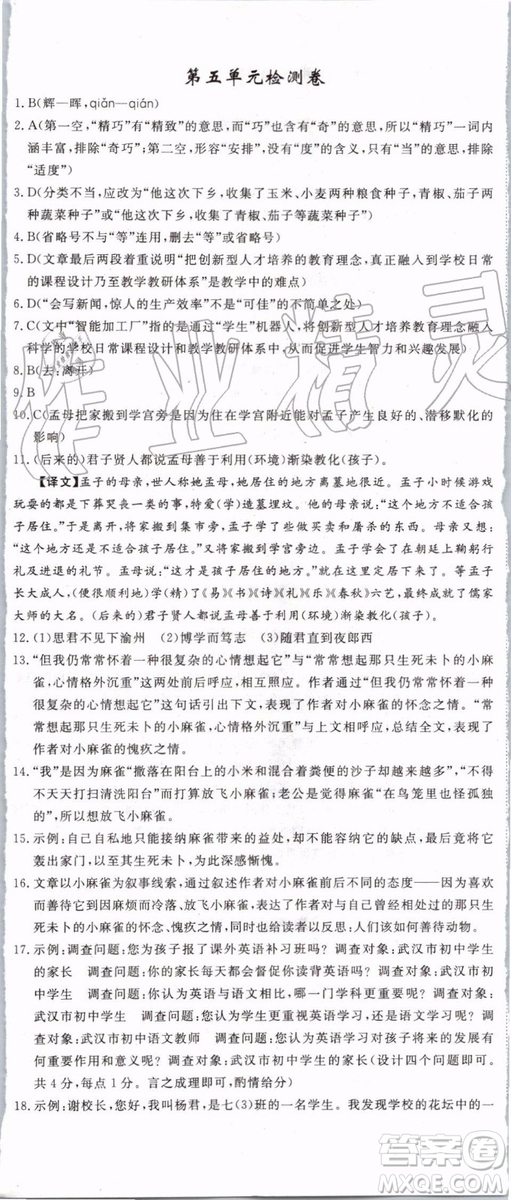 第五单元检测卷
1. B(辉—晖,qiǎn—qián)
2. A(第一空,“精巧”有“精致”的意思,而“巧”也含有“奇”的意思,所以“精巧”一词内
涵丰富,排除“奇巧”;第二空,形容“安排”,没有“度”的含义,只有“当”的意思,排除
“适度”)
3. D(分类不当,应改为“他这次下乡,收集了玉米、小麦两种粮食种子,青椒、茄子两
种蔬菜种子”或“他这次下乡,收集了青椒、茄子等蔬菜种子”)
4. B(省略号不与“等”连用,删去“等”或省略号)
5. D(文章最后两段着重说明“把创新型人才培养的教育理念,真正融入到学校日常
的课程设计乃至教学教研体系”是教学中的难点)
6. D(“会写新闻,惊人的生产效率”不是“可佳”的不简单之处)
7. C(文中“智能加工厂”指的是通过“学生”机器人,将创新型人才培养教育理念融入
科学的学校日常课程设计和教学教研体系中,从而促进学生智力和兴趣发展)
8. B(去:离开)
9. B
10. C(孟母把家搬到学宫旁是因为住在学宫附近能对孟子产生良好的、潜移默化的
影响)
11. (后来的)君子贤人都说孟母善于利用(环境)渐染教化(孩子)。
【译文】孟子的母亲,世人称她孟母。孟子小时候,居住的地方离墓地很近。孟子小时候游戏
玩耍的都是下葬哭丧一类的事,特爱(学)造墓埋坟。他的母亲说:“这个地方不适合孩
子居住。”于是离开,将家搬到集市旁,孟子学了些做买卖和屠杀的东西。母亲又想:
“这个地方还是不适合孩子居住。”又将家搬到学宫旁边。孟子学习在朝廷上鞠躬行
礼及进退的礼节。孟母说:“这才是孩子居住的地方。”就在这里定居下来了。等孟子
长大成人,(便很顺利地)学成《易》《书》《诗》《礼》《乐》《春秋》六艺,最终获得了儒家
大师的大名。(后来的)君子贤人都说孟母善于利用(环境)渐染教化(孩子)。
12. (1)思君不见下渝州 (2)博学而笃志 (3)随君直到夜郎西
13. “但我仍常常怀着一种很复杂的心情想起它”与“常常想起那只生死未卜的小麻
雀,心情格外沉重”这两处前后呼应。作者通过“但我仍常常怀着一种
很复杂的心情想起它”这句话引出下文,表现了作者对小麻雀的怀念之情。“常
常想起那只生死未卜的小麻雀,心情格外沉重”与上文相呼应,总结全文,表现了
作者对小麻雀的愧疚之情。
14. “我”是因为麻雀“撒落在阳台上的小米和混合着粪便的沙子却越来越多”,“不得
不天天打扫清洗阳台”而打算放飞小麻雀;老公是觉得麻雀“在鸟笼里也怪孤独
的”,所以想放飞小麻雀。
15. 示例:自己自私地只接纳麻雀带来的益处,却不能容纳它的缺点,最后竟将它
轰出家门,以至其生死未卜,为此深感惭愧。
16. 文章以小麻雀为叙事线索,通过叙述作者对小麻雀前后不同的态度——因为喜欢
而善待到因为麻烦而冷落、放飞,表现了作者对麻雀的愧疚与对自己曾经所作所
为的自责、后悔之情,也给读者以反思:人们该如何善待动物。
17. 示例:调查问题:您为孩子报了课外英语补习班吗? 调查对象:武汉市初中学生
的家长 调查问题:你的家长多久督促你读背英语? 调查对象:武汉市初
中学生 调查问题:你认为英语与语文相比,哪一门学科更重要? 调查对象:
武汉市初中学生 调查问题:您发现学生更重视英语学习,还是语文学习?
调查对象:武汉市初中语文教师 调查问题:您认为英语学习对孩子将来的发展有何
作用和意义呢? 调查对象:武汉市初中学生的家长(设计四个问题即可。
共4分,每点1分。言之成理即可,酌情给分)
18. 示例:谢校长,您好,我叫杨君,是七(3)班的一名学生。我发现学校的花坛中的一
作业精灵
答案卷
MXQE.COM